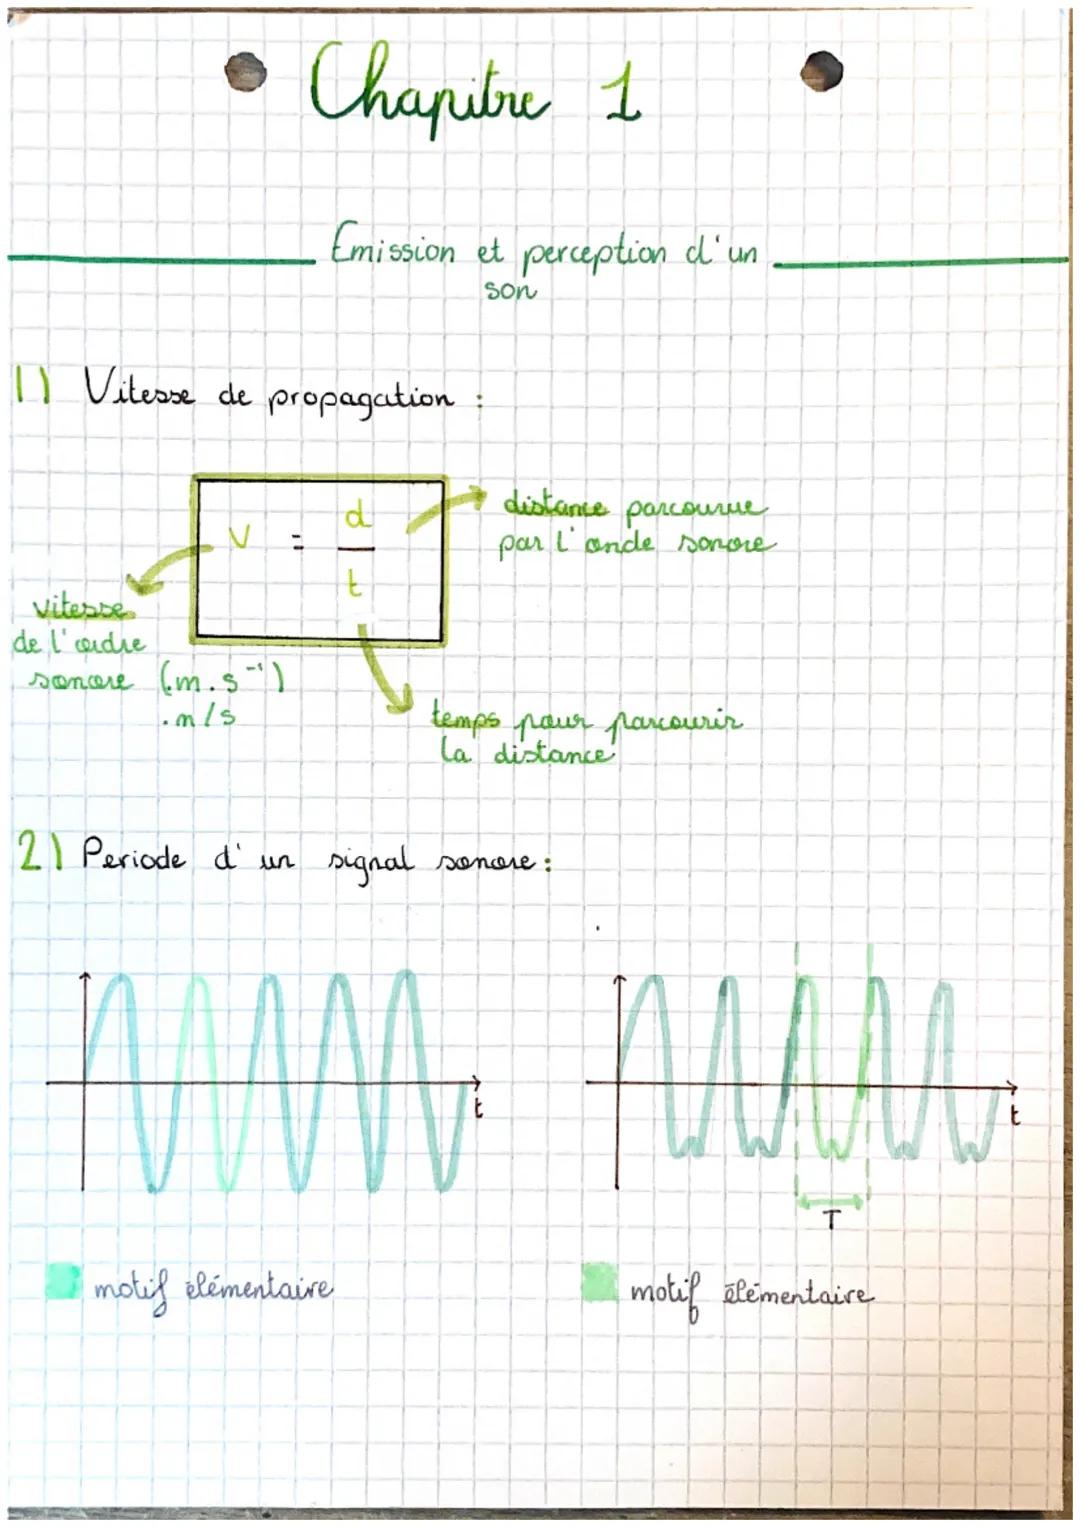 Chapitre 1
Emission et perception d'un
son
1) Vitesse de propagation :
v = d
t
distance parcourue
par l'onde sonore
vitesse
de l'ordre
sonore (m.s⁻¹)
.m/s
temps pour parcourir
la distance
2) Periode d'un signal sonore :
t
t
T
motif élémentaire
motif élémentaire